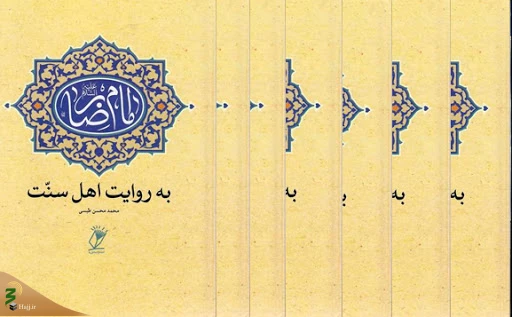 امام رضا
علیه السلام
به روایت اهل سنّت
محمد محسن طبسی
به
به
به
به
Hajj.ir